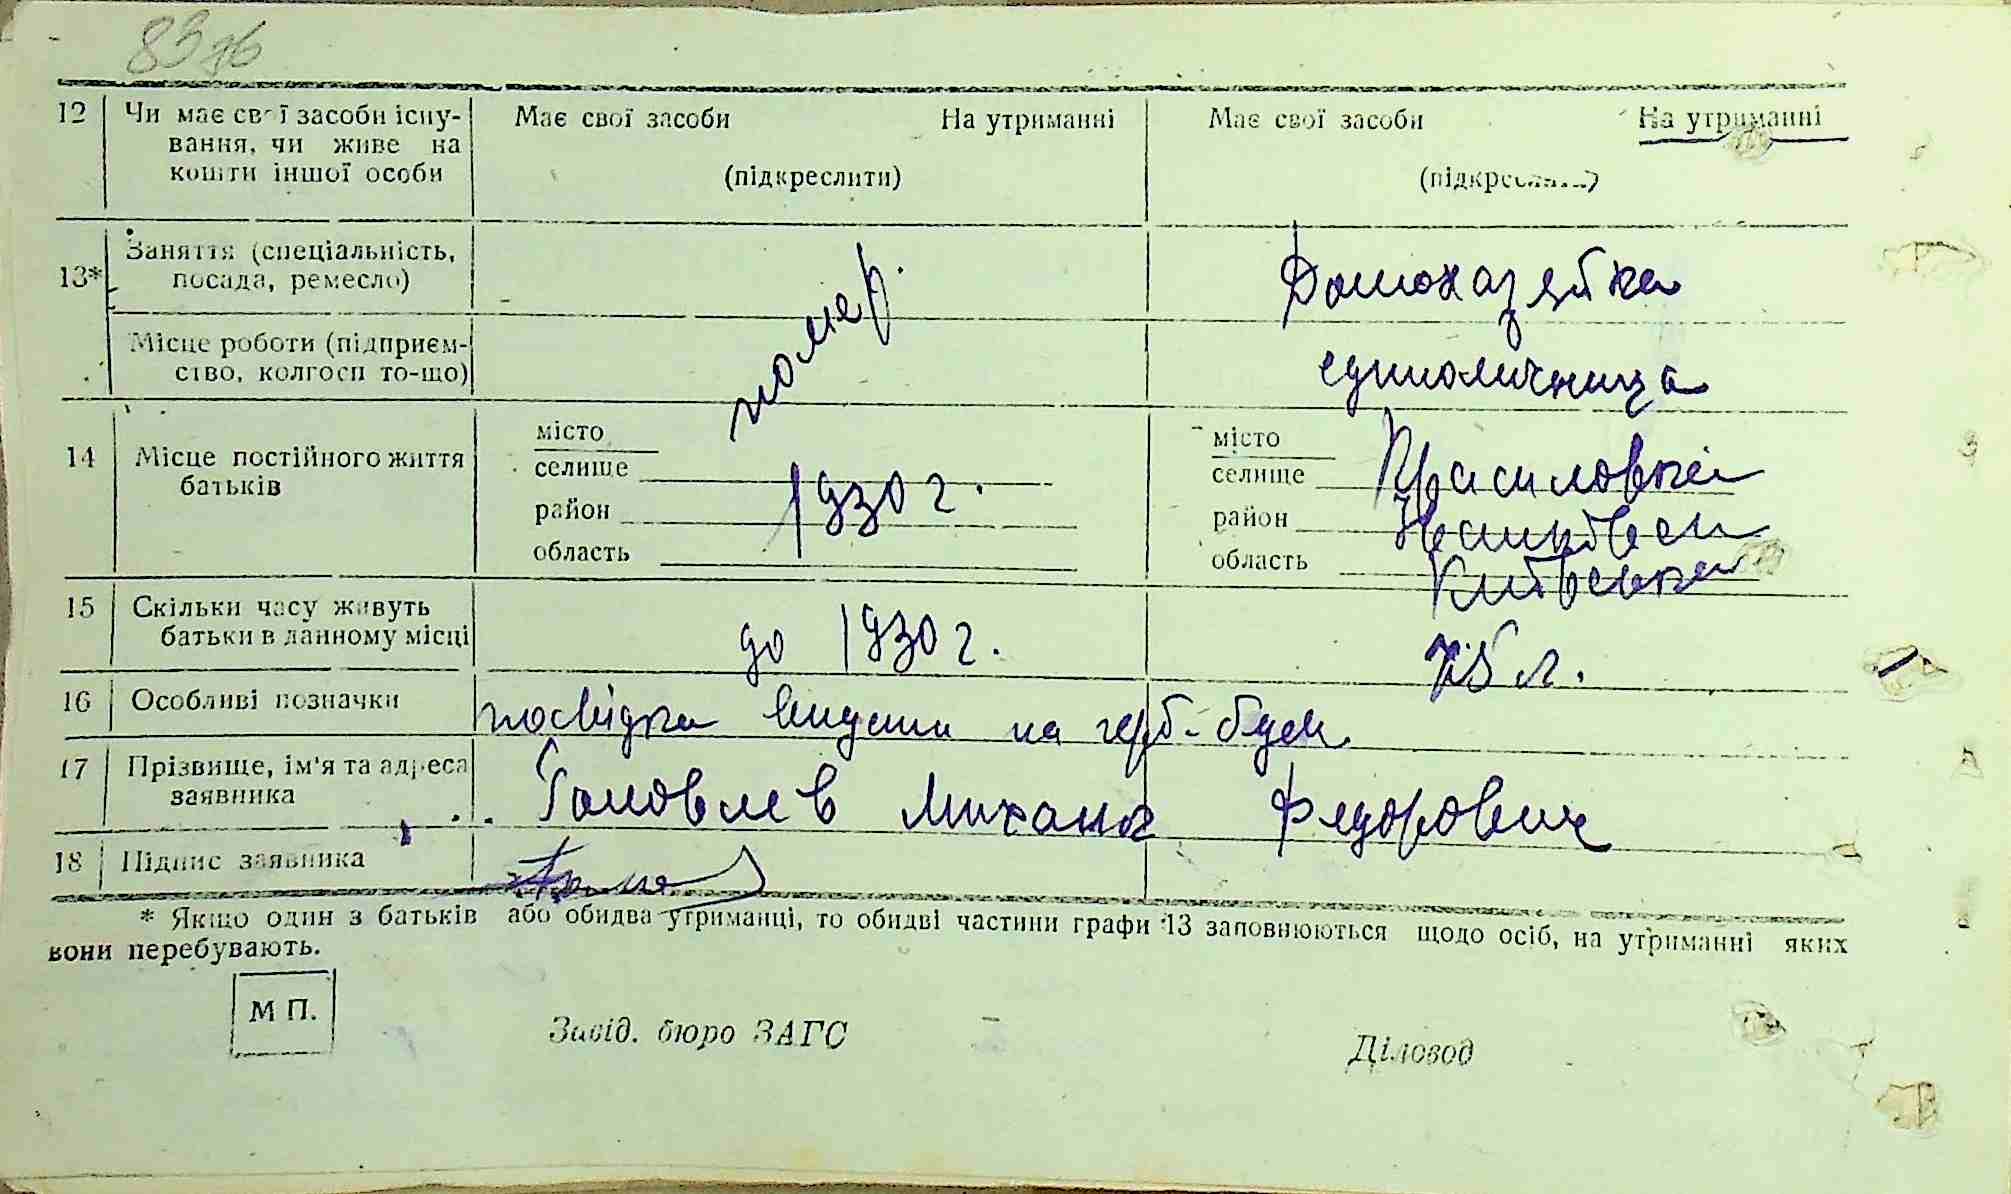 83зв
12 Чи має свої засоби існу- Має свої засоби На утриманні Має свої засоби На утриманні
вання, чи живе на
кошти іншої особи (підкреслити) (підкреслити)
13* Заняття (спеціальність, Домохазяйка
посада, ремесло) помер.
Місце роботи (підприєм- единоличница
ство, колгосп то-що)
14 Місце постійного життя місто місто
батьків селище селище
1930 г.
район район
область область Київська
15 Скільки часу живуть до 1930 г. л.
батьки в данному місці
16 Особливі позначки посвідка на герб.
17 Прізвище, ім'я та адреса Михаил Федорович
заявника
18 Підпис заявника
* Якщо один з батьків або обидва утриманці, то обидві частини графи 13 заповнюються щодо осіб, на утриманні яких
вони перебувають.
М П. Завід. бюро ЗАГС Діловод